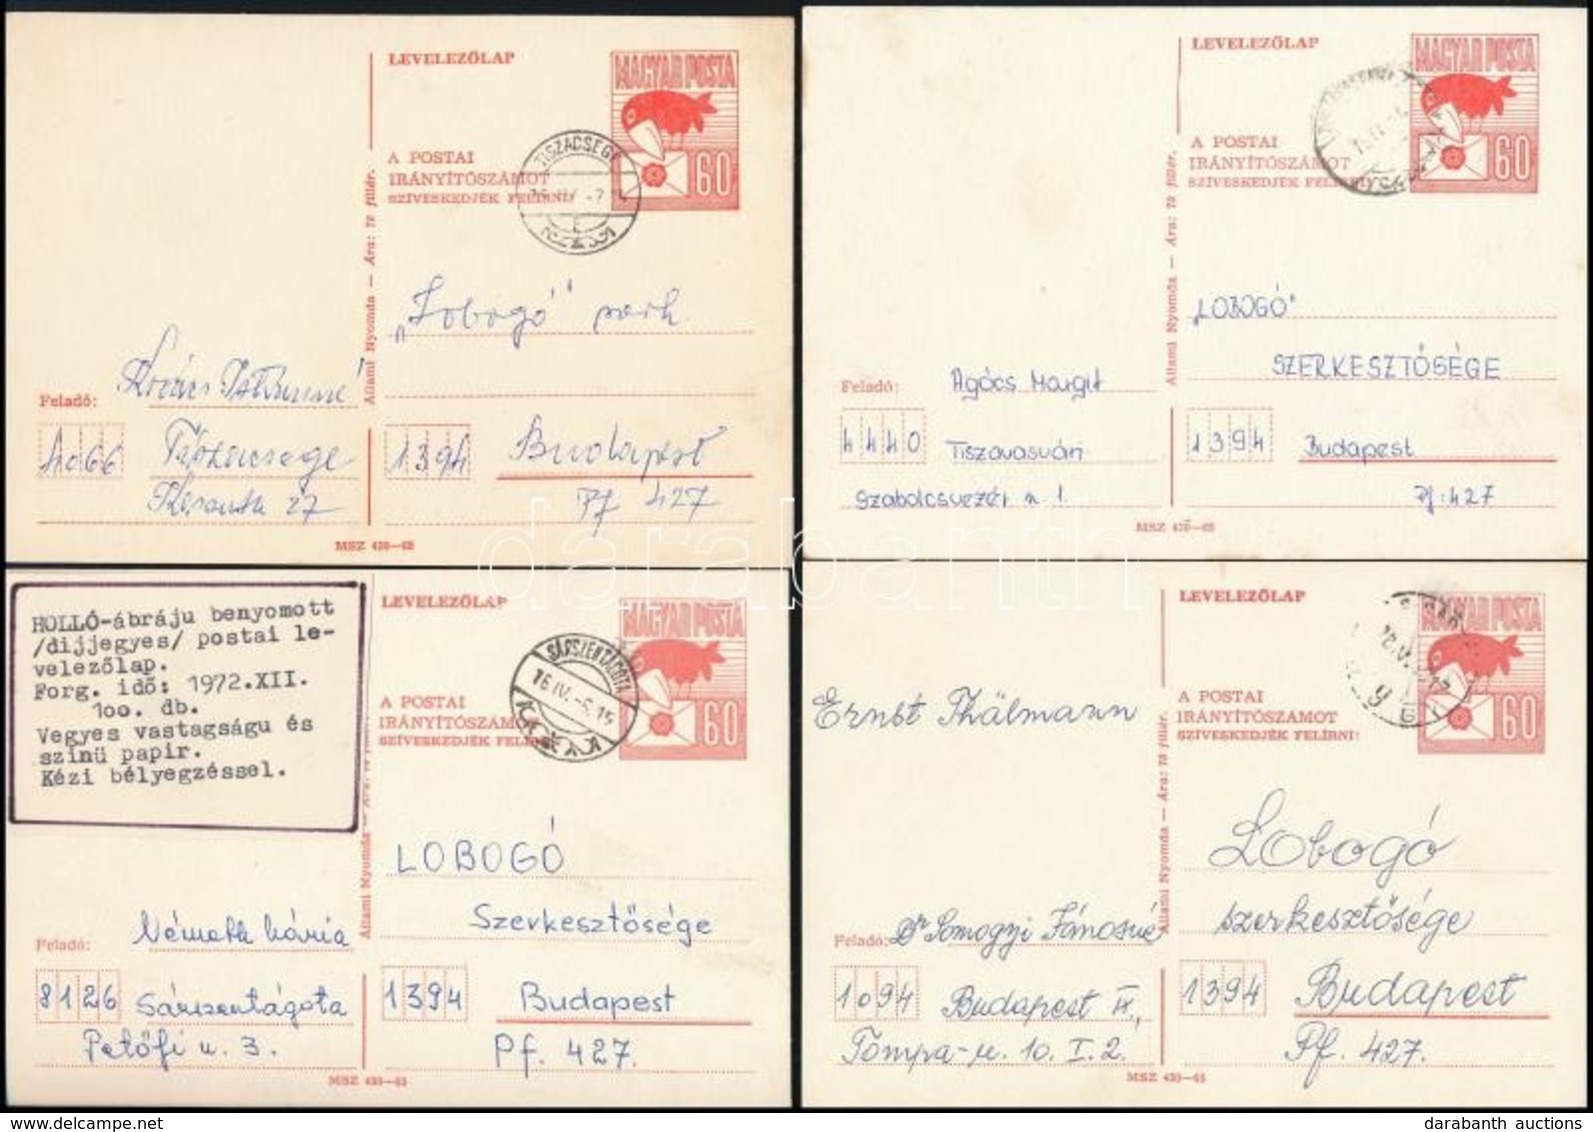 LEVELEZŐLAP
MAGYAR POSTA
A POSTAI
IRÁNYÍTÓSZÁMOT
SZÍVESKEDJÉK FELÍRNI
60
TISZACSEGE
Állami Nyomda — Ára: 70 fillér.
„Lobogó"
Feladó:
Kovács Istvánné
4066
Tiszacsege
27
1394
Budapest
Pf 427
MSZ 430—65
LEVELEZŐLAP
MAGYAR POSTA
A POSTAI
IRÁNYÍTÓSZÁMOT
SZÍVESKEDJÉK FELÍRNI
60
Állami Nyomda — Ára: 70 fillér.
„LOBOGÓ"
SZERKESZTŐSÉGE
Feladó:
Agócs Margit
4440
Tiszavasvári
Szabolcsvezér u. 1.
1394
Budapest
Pf: 427
MSZ 430—65
darabanth
HOLLÓ-ábráju benyomott
/dijjegyes/ postai le-
velezőlap.
Forg. idő: 1972.XII.
1oo. db.
Vegyes vastagságu és
szinü papir.
Kézi bélyegzéssel.
LEVELEZŐLAP
MAGYAR POSTA
A POSTAI
IRÁNYÍTÓSZÁMOT
SZÍVESKEDJÉK FELÍRNI
60
SÁRSZENTÁGOTA
76 IV. -6. 15
Állami Nyomda — Ára: 70 fillér.
LOBOGÓ
Szerkesztősége
Feladó:
Németh Mária
8126
Sárszentágota
Petőfi u. 3.
1394
Budapest
Pf. 427.
MSZ 430—65
LEVELEZŐLAP
MAGYAR POSTA
A POSTAI
IRÁNYÍTÓSZÁMOT
SZÍVESKEDJÉK FELÍRNI!
60
Ernst Thälmann
Állami Nyomda — Ára: 70 fillér.
Lobogó
szerkesztősége
Feladó:
Dr Somogyi Jánosné
1094
Budapest IX.,
Tompa-u. 10. I. 2.
1394
Budapest
Pf. 427.
MSZ 430—65
darabanth auctions